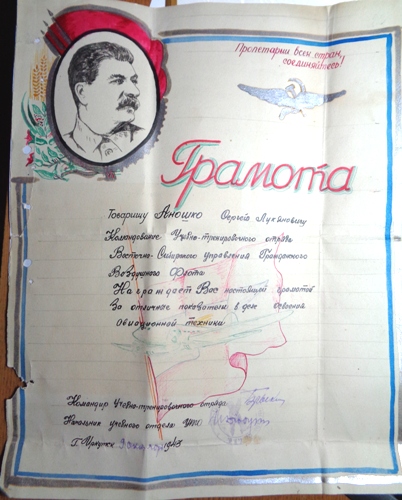 Пролетарии всех стран,
соединяйтесь!
Грамота
Товарищу Аношко Сергей Лукяновичу
Командование Учебно-тренировочного отряда
Восточно-Сибирского Управления Гражданского
Воздушного Флота
Награждает Вас настоящей грамотой
За отличные показатели в деле освоения
Авиационной техники
Командир Учебно-тренировочного отряда
Начальник учебного отдела УТО
Г. Иркутск